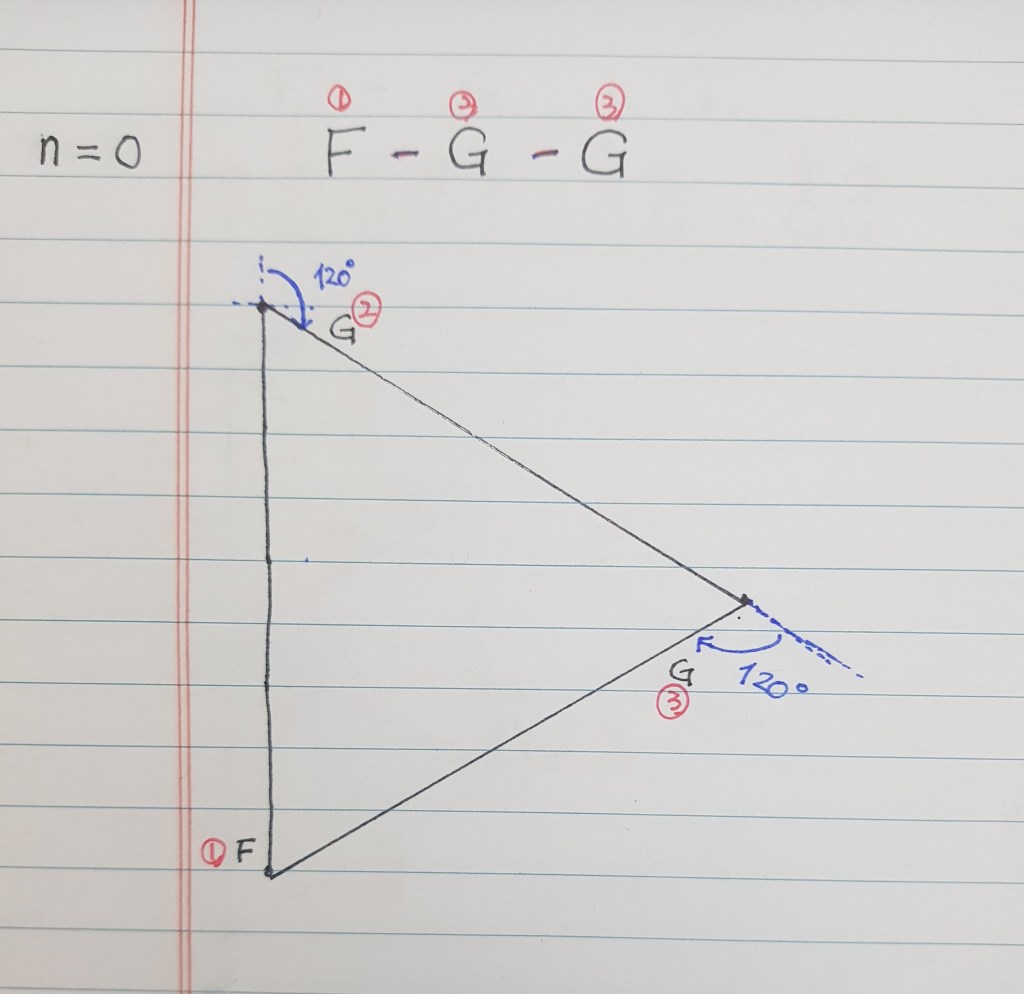 ① ② ③
n = 0 F - G - G
120°
G ②
G 120°
③
① F